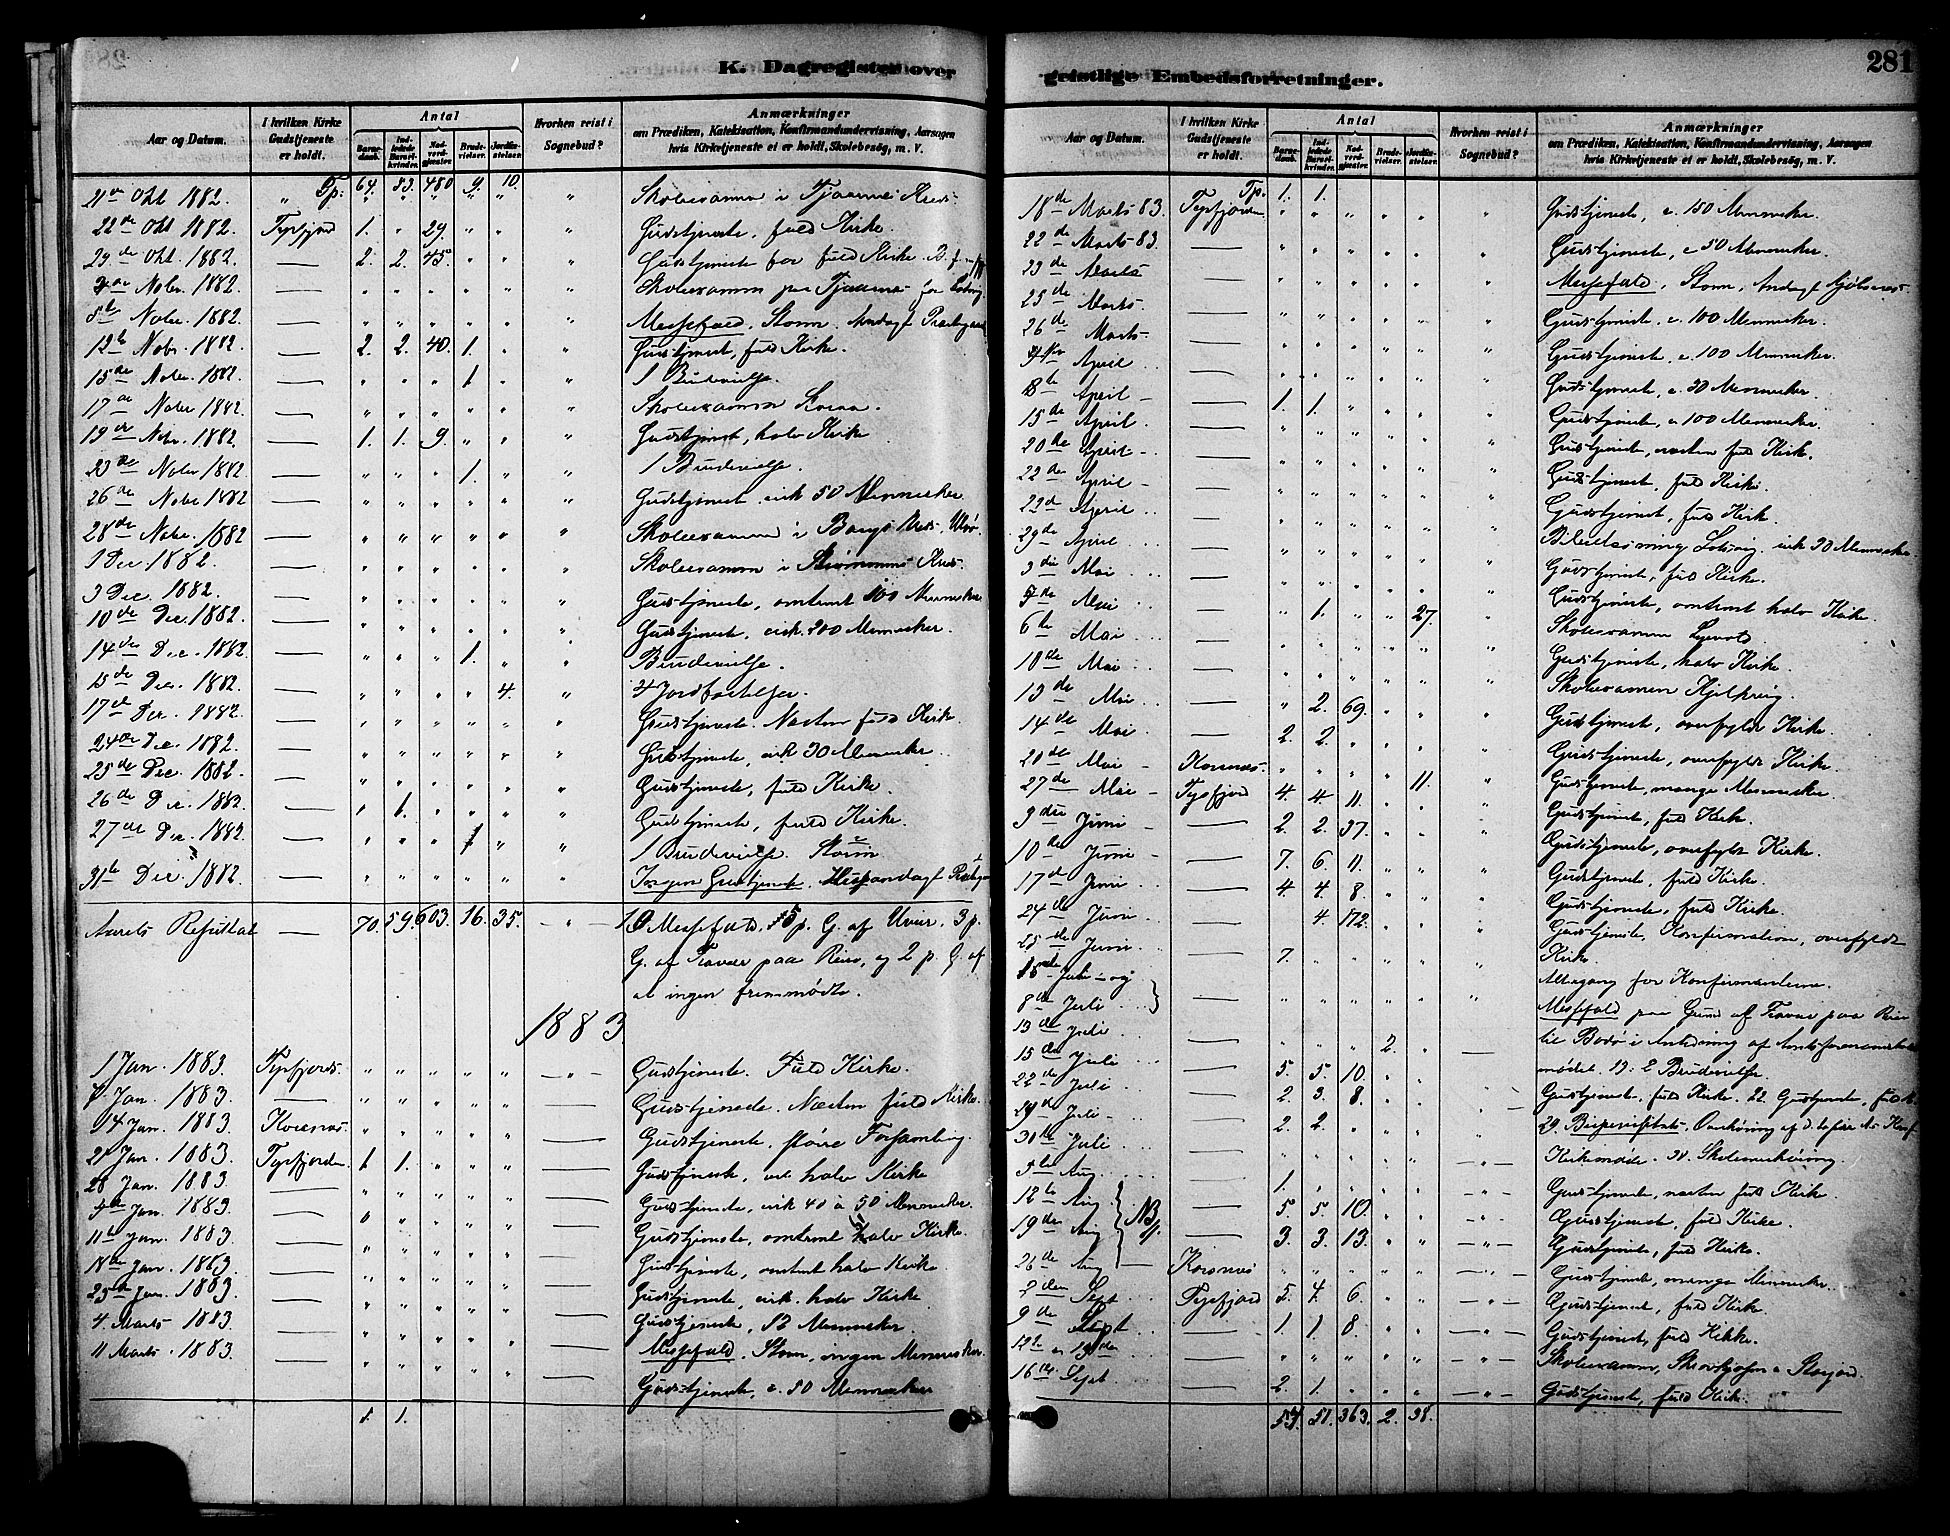 K. Dagregister over
geistlige Embedsforretninger.
281
Aar og Datum.
I hvilken Kirke Gudstjeneste er holdt.
Antal
Barnedaab.
Indledede Barselkvinder.
Nadverdgjæster.
Brudevielser.
Jordfæstelser.
Hvorhen reist i Sognebud?
Anmærkninger
om Prædiken, Katekisation, Konfirmandundervisning, Aarsagen
hvis Kirketjeneste ei er holdt, Skolebesøg, m. V.
21de Okt 1882. " Tp: 64. 53. 480 9. 10. " Skoleexamen i Tjaarnes Kreds
22de Okt 1882. Tysfjord 1. " 29 " " " Gudstjeneste, fuld Kirke.
29de Okt 1882 — 2. 2. 45. " " " Gudstjeneste for fuld Kirke.
Nobr. 1882. — " " " " " " Skoleexamen paa Tjaarnes for
5te Nobr. 1882 — " " " " " " Messefald. Storm. Andagt Præstegaard
12te Nobr. 1882 — 2. 2. 40. 1. " " Gudstjeneste, fuld Kirke.
15de Nobr. 1882 — " " " 1 " " 1 Brudevielse.
17de Nobr 1882 — " " " " " " Skoleexamen
19de Nobr. 1882. — 1. 1. 9. " " " Gudstjenest, halv Kirke
23de Nobr 1882 — " " " 1. " " 1 Brudevielse.
26de Nobr 1882 — " " " " " " Gudstjenest. cirk 50 Mennesker
28de Nobr. 1882 — " " " " " " Skoleexamen i
1 Dec 1882. — " " " " " " Skoleexamen i
3 Dec. 1882. — " " " " " " Gudstjeneste, omtrent 100 Mennesker
10de Dec. 1882 — " " " " " " Gudstjeneste, cirk. 200 Mennesker.
14de Dec. 1882 — " " " 1. " " Brudevielse.
15de Dec. 1882. — " " " " 4. " 4 Jordfæstelser.
17de Dec. 1882 — " " " " " " Gudstjeneste. Næsten fuld Kirke.
24de Dec. 1882. — " " " " " " Gudstjeneste, cirk 30 Mennesker.
25de Dec. 1882. — " " " " " " Gudstjeneste, fuld Kirke.
26de Dec. 1882. — " 1. " " " " Gudstjeneste, fuld Kirke.
27de Dec. 1882 — " " " 1 " " 1 Brudevielse. Storm
31te Dec. 1882 — " " " " " " Ingen Gudstjeneste. Husandagt
Aarets Resultat — 70. 59. 603. 16. 35. — " — 10 Messefald, 5 p. G. af Uveir, 3 p.
G. af Fravær paa Reise, og 2 p. G. af
at ingen fremmødte.
1883
1 Jan. 1883. Tysfjords. " " " " " — " — Gudstjeneste. Fuld Kirke.
7 Jan. 1883 — " " " " " — Gudstjeneste. Næsten fuld Kirke.
14 Jan. 1883 Korsnæs. " " " " " — Gudstjeneste, større Forsamling.
21 Jan. 1883. Tysfjorden 1 1. " " " — Gudstjeneste, halv Kirke
28 Jan. 1883 — " " " " " — Gudstjeneste, cirk 40 à 50 Mennesker.
Jan. 1883. — " " " " " — Gudstjeneste, omtrent halv Kirke.
11te Jan. 1883 — " " " " " — Gudstjeneste, omtrent halv Kirke.
18de Jan. 1883 — " " " " " — Gudstjeneste, cirk. halv Kirke
25de Jan. 1883 — " " " " " — Gudstjeneste, Mennesker.
4. Marts 1883 — " " " " " — Messefald. Storm, ingen Mennesker.
11 Marts. 1883. — " " " " " — Gudstjeneste, c. 50 Mennesker
1. 1.
Aar og Datum.
I hvilken Kirke Gudstjeneste er holdt.
Antal
Barnedaab.
Indledede Barselkvinder.
Nadverdgjæster.
Brudevielser.
Jordfæstelser.
Hvorhen reist i Sognebud?
Anmærkninger
om Prædiken, Katekisation, Konfirmandundervisning, Aarsagen
hvis Kirketjeneste ei er holdt, Skolebesøg, m. V.
18de Marts 83. Tysfjorden Tp: 1. 1. " " " " Gudstjeneste, c. 150 Mennesker.
22de Marts 83. — " " " " " " Gudstjeneste, c 50 Mennesker.
23de Marts — " " " " " " Messefald, Storm, Andagt
25de Marts. — " " " " " " Gudstjeneste, c. 100 Mennesker.
26de Marts — " " " " " " Gudstjeneste, c. 100 Mennesker.
April — " " " " " " Gudstjeneste c. 30 Mennesker.
8de April — 1. 1. " " " " Gudstjeneste, c 100 Mennesker.
15de April. — " " " " " " Gudstjeneste, næsten fuld Kirke.
20de April — " " " " " " Gudstjeneste, fuld Kirke.
22de April — " " " " " " Gudstjeneste, fuld Kirke.
22de April — " " " " " " Bibellæsning cirk 30 Mennesker
29de April — " " " " " " Gudstjeneste, fuld Kirke.
3die Mai — " " " " " " Gudstjeneste, omtrent halv Kirke.
Mai — " 1. " " 27. " Skoleexamen
6te Mai — " " " " " " Gudstjeneste, halv Kirke.
10de Mai — " " " " " " Skoleexamen
13de Mai — " 2. 69. " " " Gudstjeneste, overfyldt Kirke.
14de Mai — 2. 2. " " " " Gudstjeneste, overfyldt Kirke.
20de Mai Korsnæs. " " " " 11. " Gudstjeneste, mange Mennesker.
27de Mai Tysfjord 4. 4. 11. " " " Gudstjeneste, fuld Kirke.
3die Juni — 2. 2. 37. " " " Gudstjeneste, overfyldt Kirke.
10de Juni — 7. 6. 11. " " " Gudstjeneste, fuld Kirke.
17de Juni — 4. 4. 8. " " " Gudstjeneste, fuld Kirke.
24de Juni — 4. 172. " " " Gudstjeneste, Konfirmation, overfyldt
Kirke.
25de Juni — 7. " " " " Altergang for Konfirmanterne.
Juli og — " " " " " "
8de Juli Messefald paa Grund af Fravær paa Reise
13de Juli til Bodø i Anledning af
15de Juli — " " " 2. " — mødet. 2 Brudevielser.
22de Juli — 5. 5. 10. " " Gudstjeneste, fuld Kirke. 22 Gudstjeneste, fuld K.
29de Juli — 2. 3. 8. " " — " — 29.
30te Juli — 2. 2. " " " Kirkemøde.
5te Aug. — " " " " " — " — Gudstjeneste, næsten fuld Kirke.
12te Aug NB — 1. " " " " — " — Gudstjeneste, fuld Kirke.
19de Aug — 5. 5. 10. " " — " — Gudstjeneste, fuld Kirke.
26de Aug — Korsnæs 3. 3. 13. " " — " — Gudstjeneste, mange Mennesker.
2den Sept Tysfjord 5. 4. 6. " " — " — Gudstjeneste, fuld Kirke.
9de Sept — 1. 1. 8. " " — " — Gudstjeneste, fuld Kirke.
12te & 13de — " " " " " — " — Skoleexamen,
16de Sept — 2. 1. " " " — " — Gudstjeneste, fuld Kirke.
54. 51. 363. 2. 38.